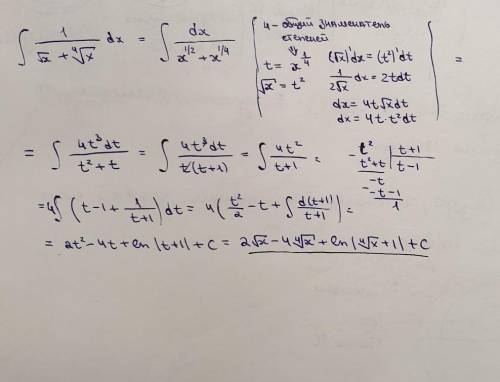 ∫ 1/(√x + ⁴√x) dx = ∫ dx/(x^{1/2} + x^{1/4}) | 4 - общий знаменатель степеней
t = x^{1/4} (√x)' dx = (t²)' dt
√x = t² 1/(2√x) dx = 2t dt
dx = 4t√x dt
dx = 4t · t² dt | =
= ∫ 4t³ dt/(t² + t) = ∫ 4t³ dt/(t(t+1)) = ∫ 4t²/(t+1) =
t² | t+1
t²+t | t-1
-t
-t-1
1
= 4∫ (t - 1 + 1/(t+1)) dt = 4(t²/2 - t + ∫ d(t+1)/(t+1)) =
= 2t² - 4t + ln|t+1| + C = 2√x - 4⁴√x + ln|⁴√x + 1| + C